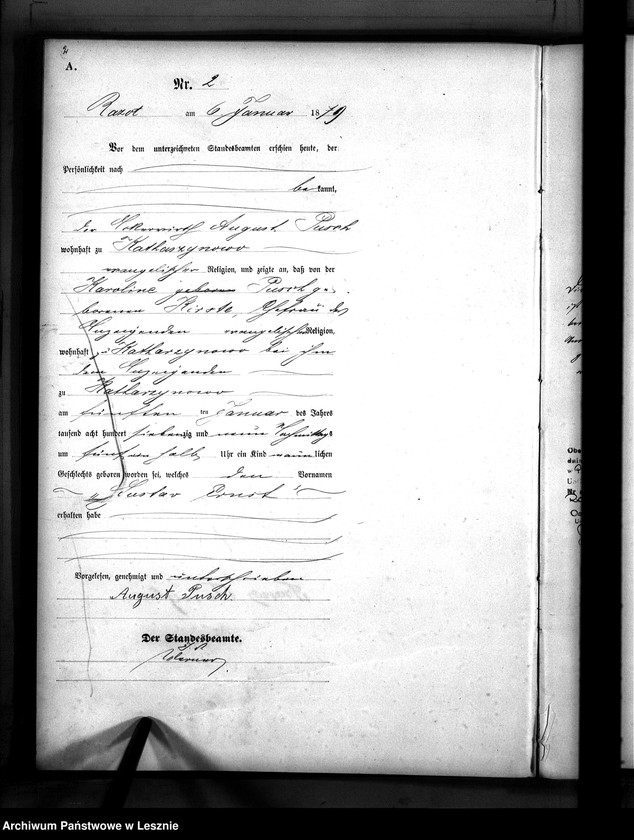 2
A.
Nr. 2
Razot am 6 Januar 1879
Vor dem unterzeichneten Standesbeamten erschien heute, der
Persönlichkeit nach
bekannt,
der Ackerwirth August Pusch
wohnhaft zu Katharzynowo
evangelischer Religion, und zeigte an, daß von der
Karoline geboren Pusch ge-
borenen Kirste, Ehefrau des
Anzeigenden evangelischer Religion,
wohnhaft zu Katharzynowo bei ihm
dem Anzeigenden
zu Katharzynowo
am fünften ten Januar des Jahres
tausend acht hundert siebenzig und neun Vormittags
um fünf ein halb Uhr ein Kind männlichen
Geschlechts geboren worden sei, welches den Vornamen
"Gustav Ernst"
erhalten habe
Vorgelesen, genehmigt und unterschrieben
August Pusch.
Der Standesbeamte.
Archiwum Państwowe w Lesznie